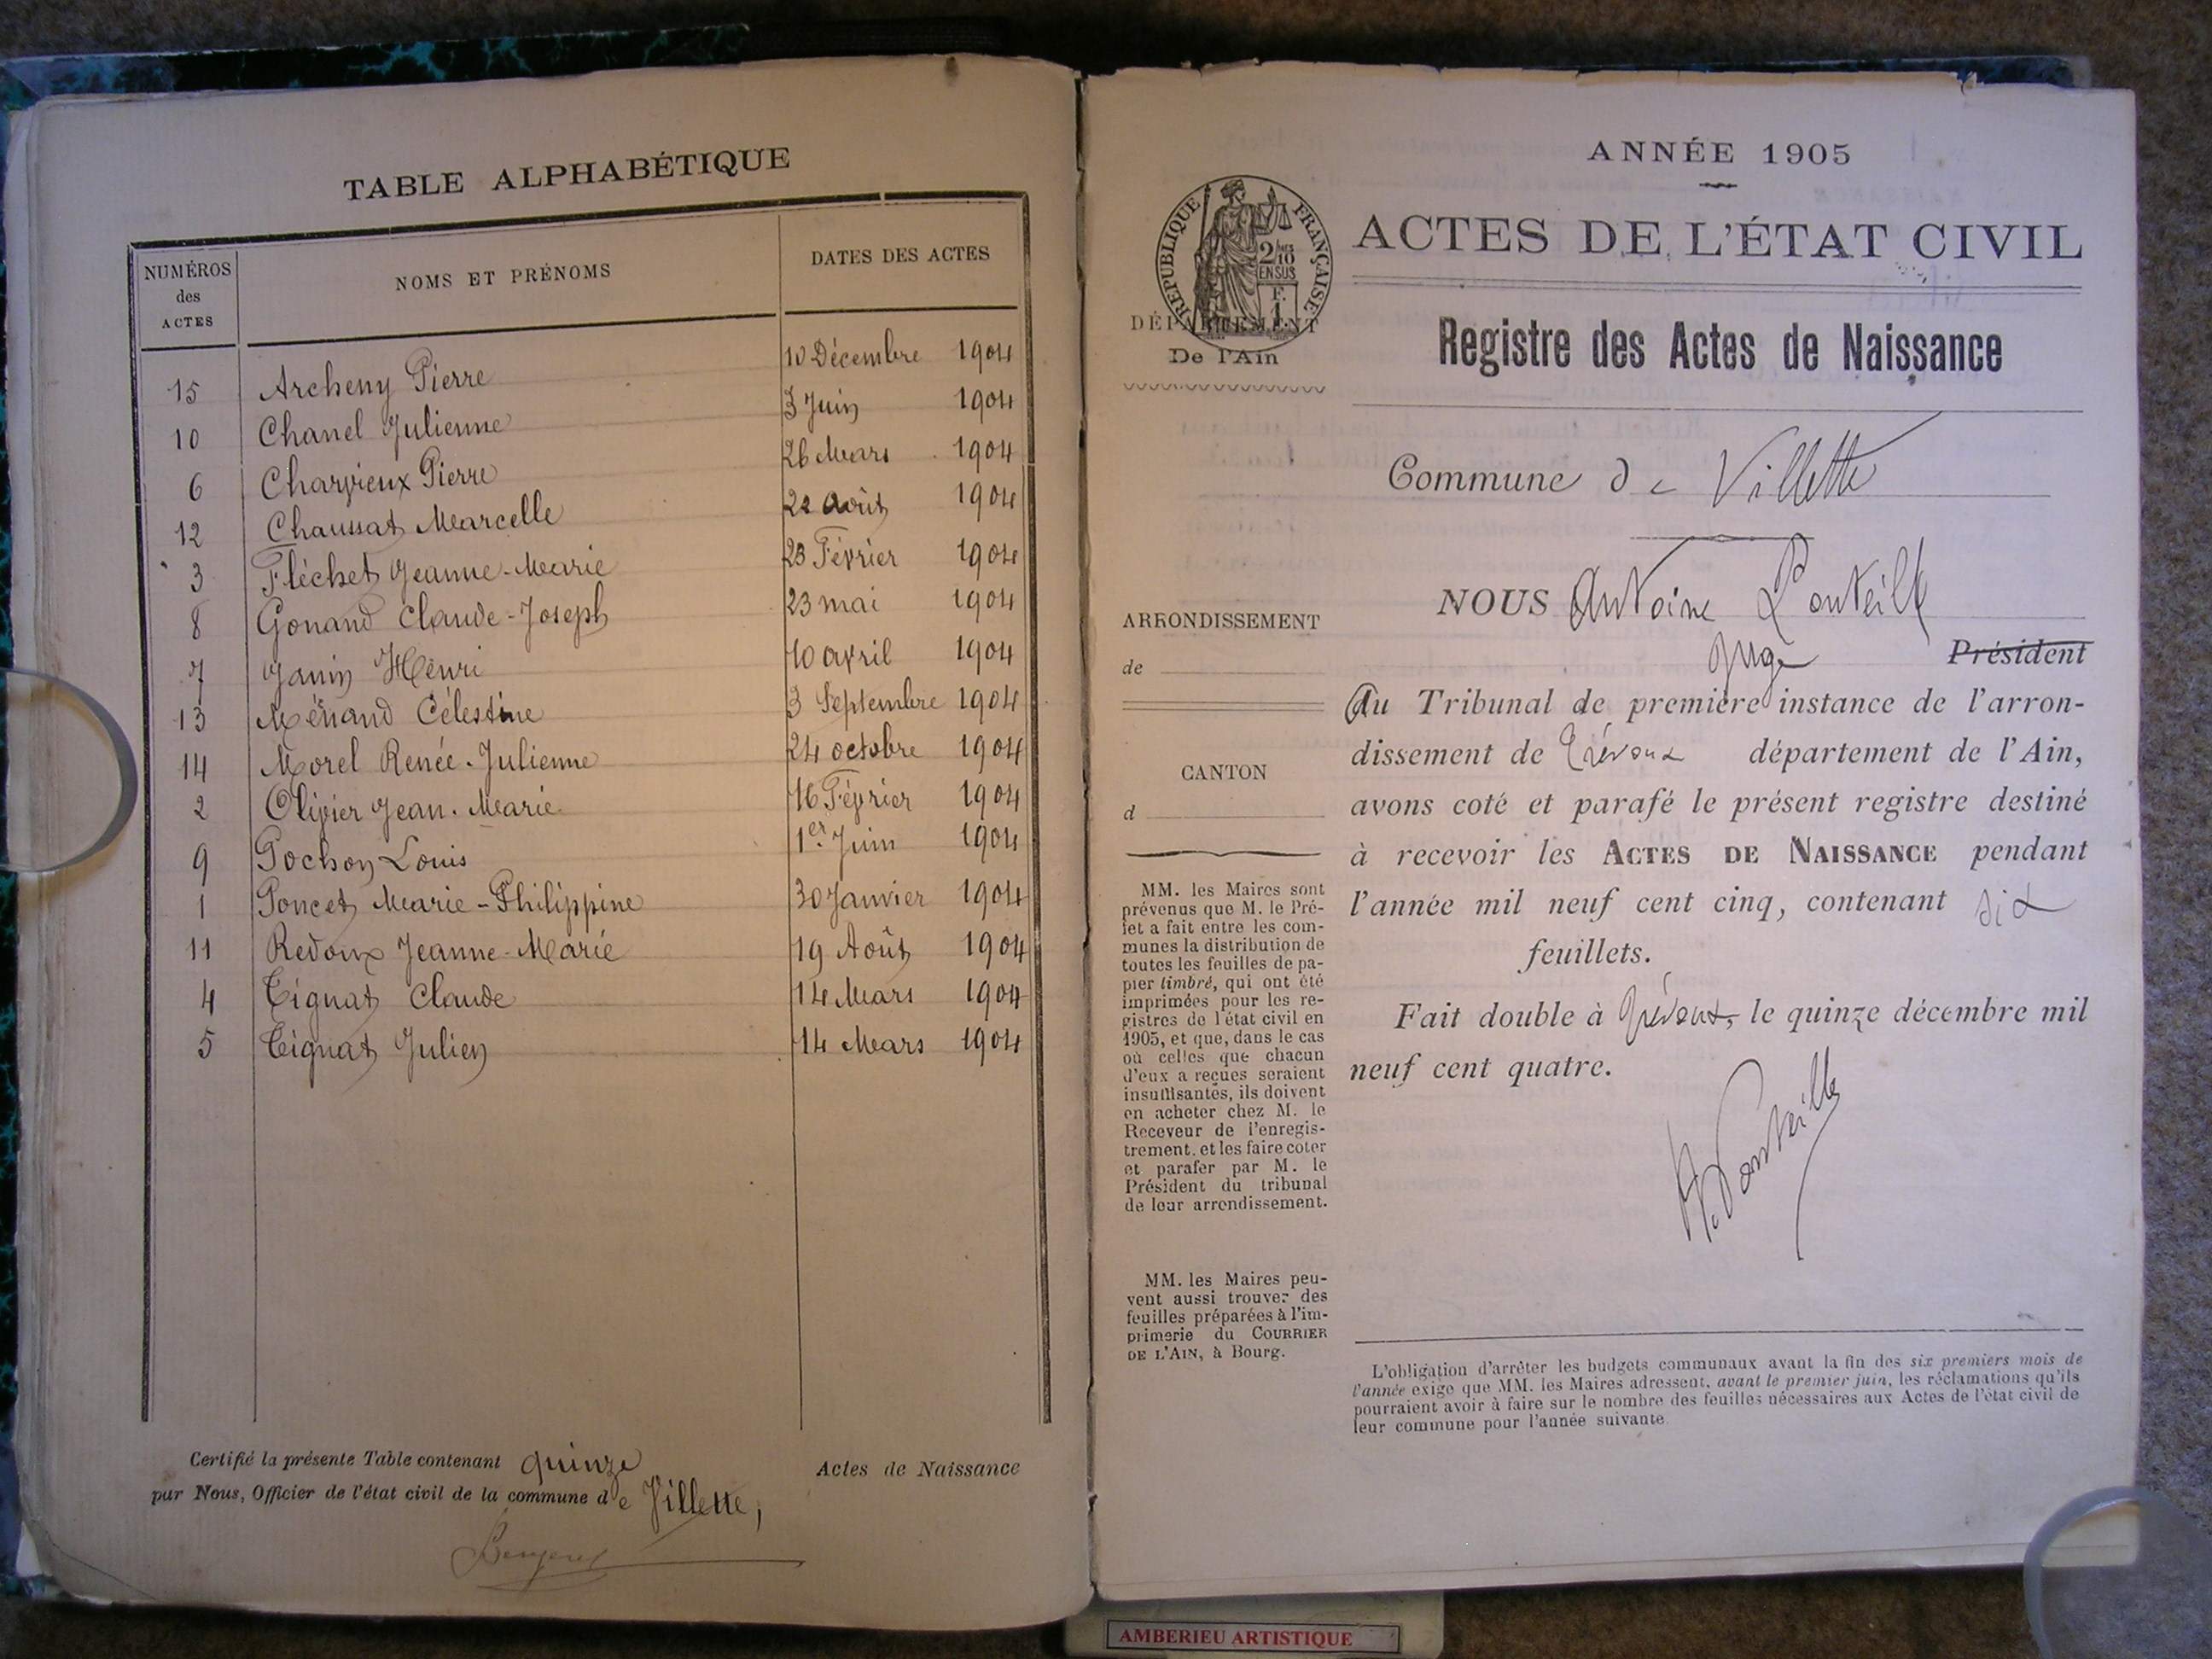 TABLE ALPHABÉTIQUE
NUMÉROS des ACTES NOMS ET PRÉNOMS DATES DES ACTES
15 Archeny Pierre 10 Décembre 1904
10 Chanel Julienne 3 Juin 1904
6 Charvieux Pierre 26 Mars 1904
12 Chaussat Marcelle 22 août 1904
3 Fléchet Jeanne-Marie 23 Février 1904
8 Gonand Claude-Joseph 23 mai 1904
7 Janin Henri 10 avril 1904
13 Ménand Célestine 3 Septembre 1904
14 Morel Renée-Julienne 24 octobre 1904
2 Olivier Jean-Marie 16 Février 1904
9 Pochon Louis 1er Juin 1904
1 Poncet Marie-Philippine 30 Janvier 1904
11 Redoux Jeanne-Marie 19 Août 1904
4 Tignat Claude 14 Mars 1904
5 Tignat Julien 14 Mars 1904
Certifié la présente Table contenant quinze Actes de Naissance
par Nous, Officier de l'état civil de la commune de Villette,
ANNÉE 1905
ACTES DE L'ÉTAT CIVIL
RÉPUBLIQUE FRANÇAISE
2/10
EN SUS
F.
1
DÉPARTEMENT
De l'Ain
Registre des Actes de Naissance
Commune de Villette
NOUS Antoine Ponteille
Juge Président
au Tribunal de première instance de l'arron-
dissement de Trévoux département de l'Ain,
avons coté et parafé le présent registre destiné
à recevoir les ACTES DE NAISSANCE pendant
l'année mil neuf cent cinq, contenant dix
feuillets.
Fait double à Trévoux, le quinze décembre mil
neuf cent quatre.
A. Ponteille
ARRONDISSEMENT
de
CANTON
d
MM. les Maires sont
prévenus que M. le Pré-
fet a fait entre les com-
munes la distribution de
toutes les feuilles de pa-
pier timbré, qui ont été
imprimées pour les re-
gistres de l'état civil en
1905, et que, dans le cas
où celles que chacun
d'eux a reçues seraient
insuffisantes, ils doivent
en acheter chez M. le
Receveur de l'enregis-
trement, et les faire coter
et parafer par M. le
Président du tribunal
de leur arrondissement.
MM. les Maires peu-
vent aussi trouver des
feuilles préparées à l'im-
primerie du COURRIER
DE L'AIN, à Bourg.
L'obligation d'arrêter les budgets communaux avant la fin des six premiers mois de
l'année exige que MM. les Maires adressent, avant le premier juin, les réclamations qu'ils
pourraient avoir à faire sur le nombre des feuilles nécessaires aux Actes de l'état civil de
leur commune pour l'année suivante.
AMBERIEU ARTISTIQUE